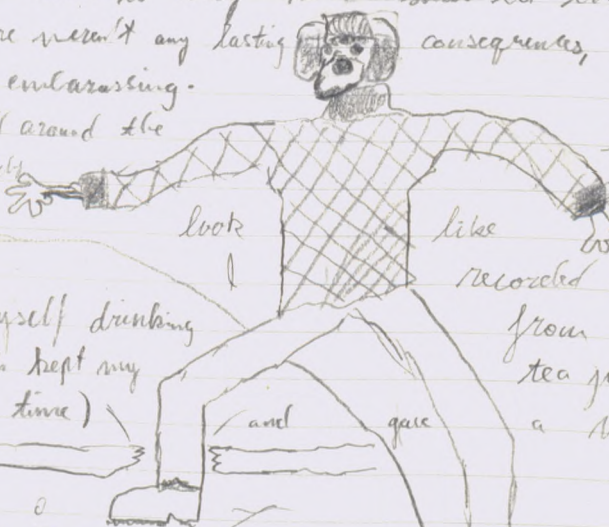 re weren't any lasting consequences,
embarassing.
around the
look like
I recorded
myself drinking from
kept my tea
time) and gave a